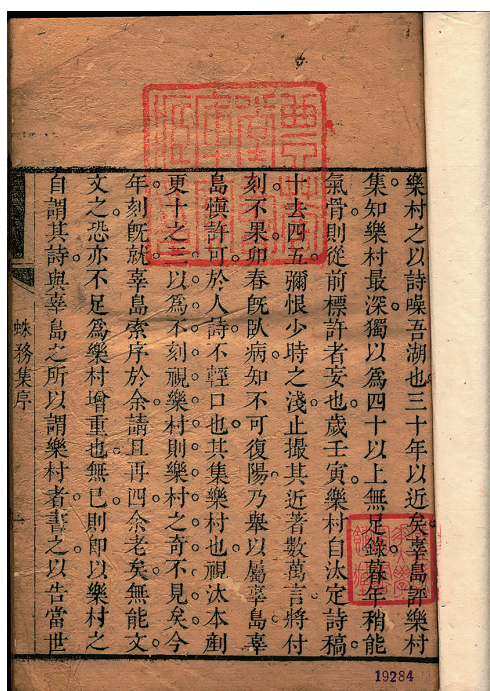 樂村之以詩噪吾湖也三十年以近矣辜島評樂村
集知樂村最深獨以爲四十以上無足錄暮年稍能
氣骨則從前標許者妄也歲壬寅樂村自汰定詩稿
十去四五彌恨少時之淺止撮其近著數萬言將付
刻不果卯春旣臥病知不可復陽乃舉以屬辜島辜
島愼許可於人詩不輕口也其集樂村也視汰本剷
更十之三以爲不刻視樂村則樂村之奇不見矣今
年刻旣就辜島索序於余請且再四余老矣無能文
文之恐亦不足爲樂村增重也無已則卽以樂村之
自謂其詩與辜島之所以謂樂村者書之以告當世
蛛務集序
一
19284